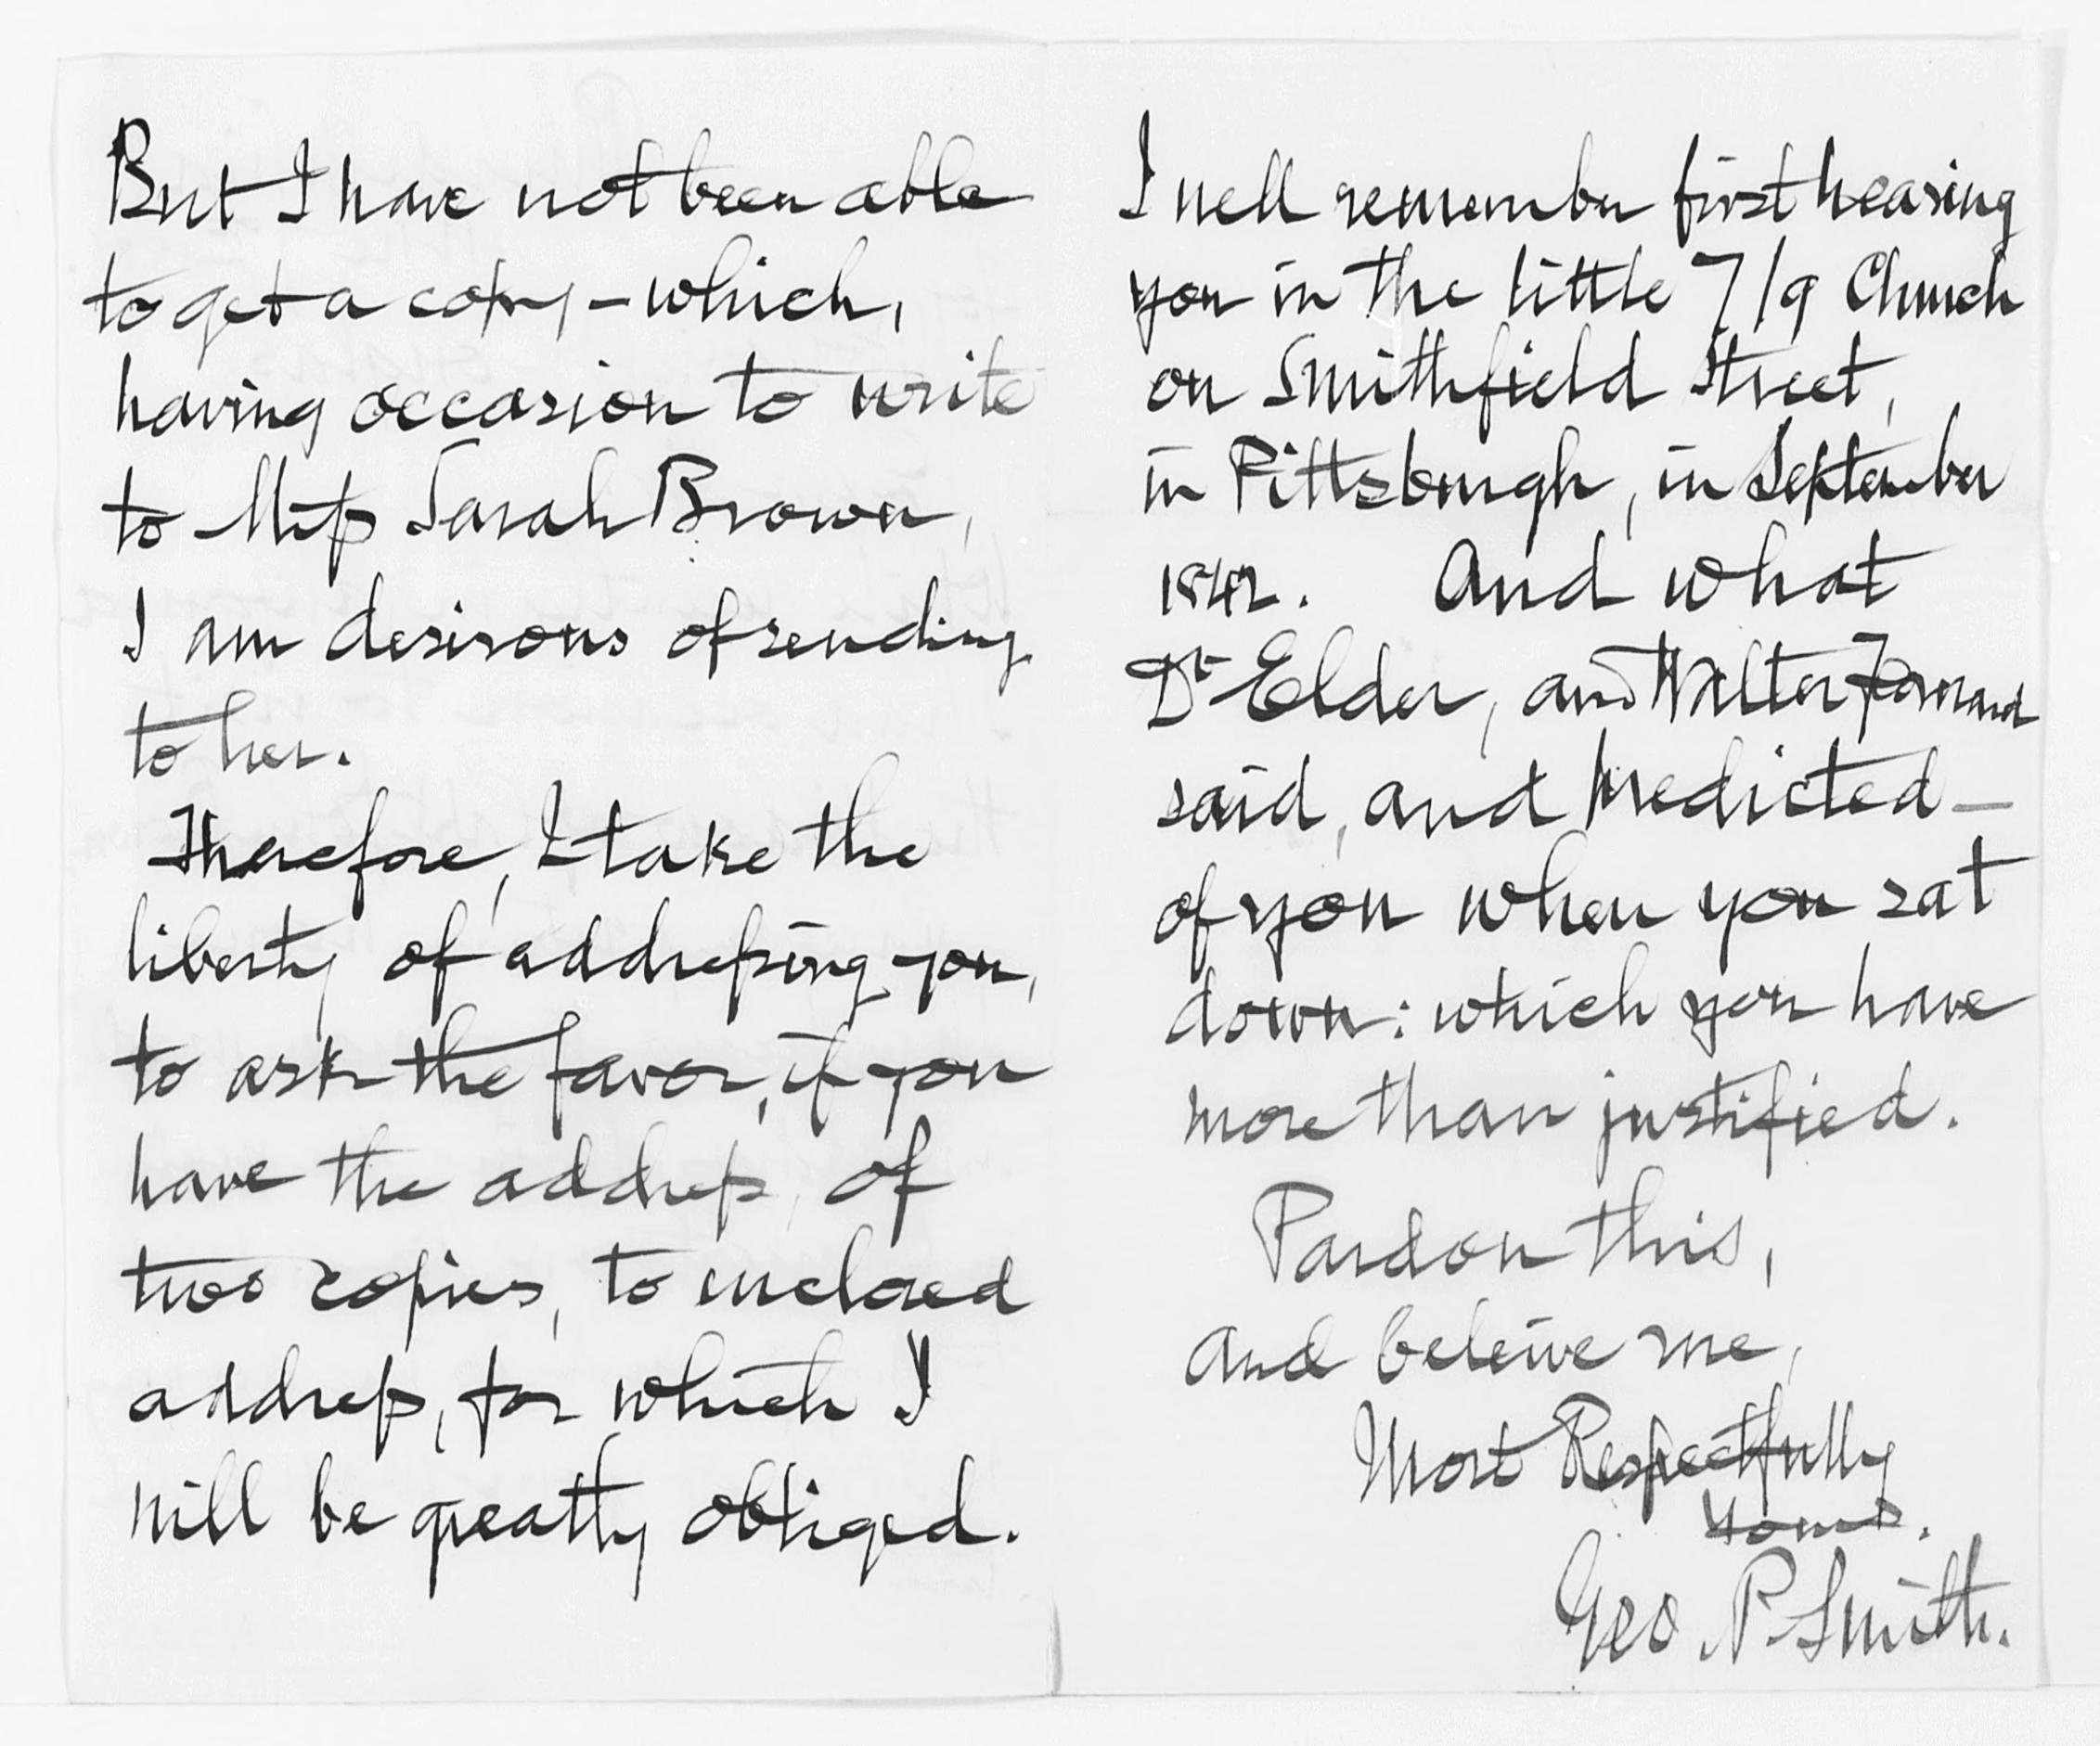 But I have not been able
to get a copy – which,
having occasion to write
to Miss Sarah Brown,
I am desirous of sending
to her.
Therefore, I take the
liberty of addressing you,
to ask the favor, if you
have the address, of
two copies, to inclosed
address, for which I
will be greatly obliged.
I well remember first hearing
you in the little 7/9 Church
on Smithfield Street,
in Pittsburgh, in September
1842. And what
Dr Elder, and Walter Forward
said, and predicted –
of you when you sat
down: which you have
more than justified.
Pardon this,
and beleive me,
Most Respectfully
Yours.
Geo. P. Smith.